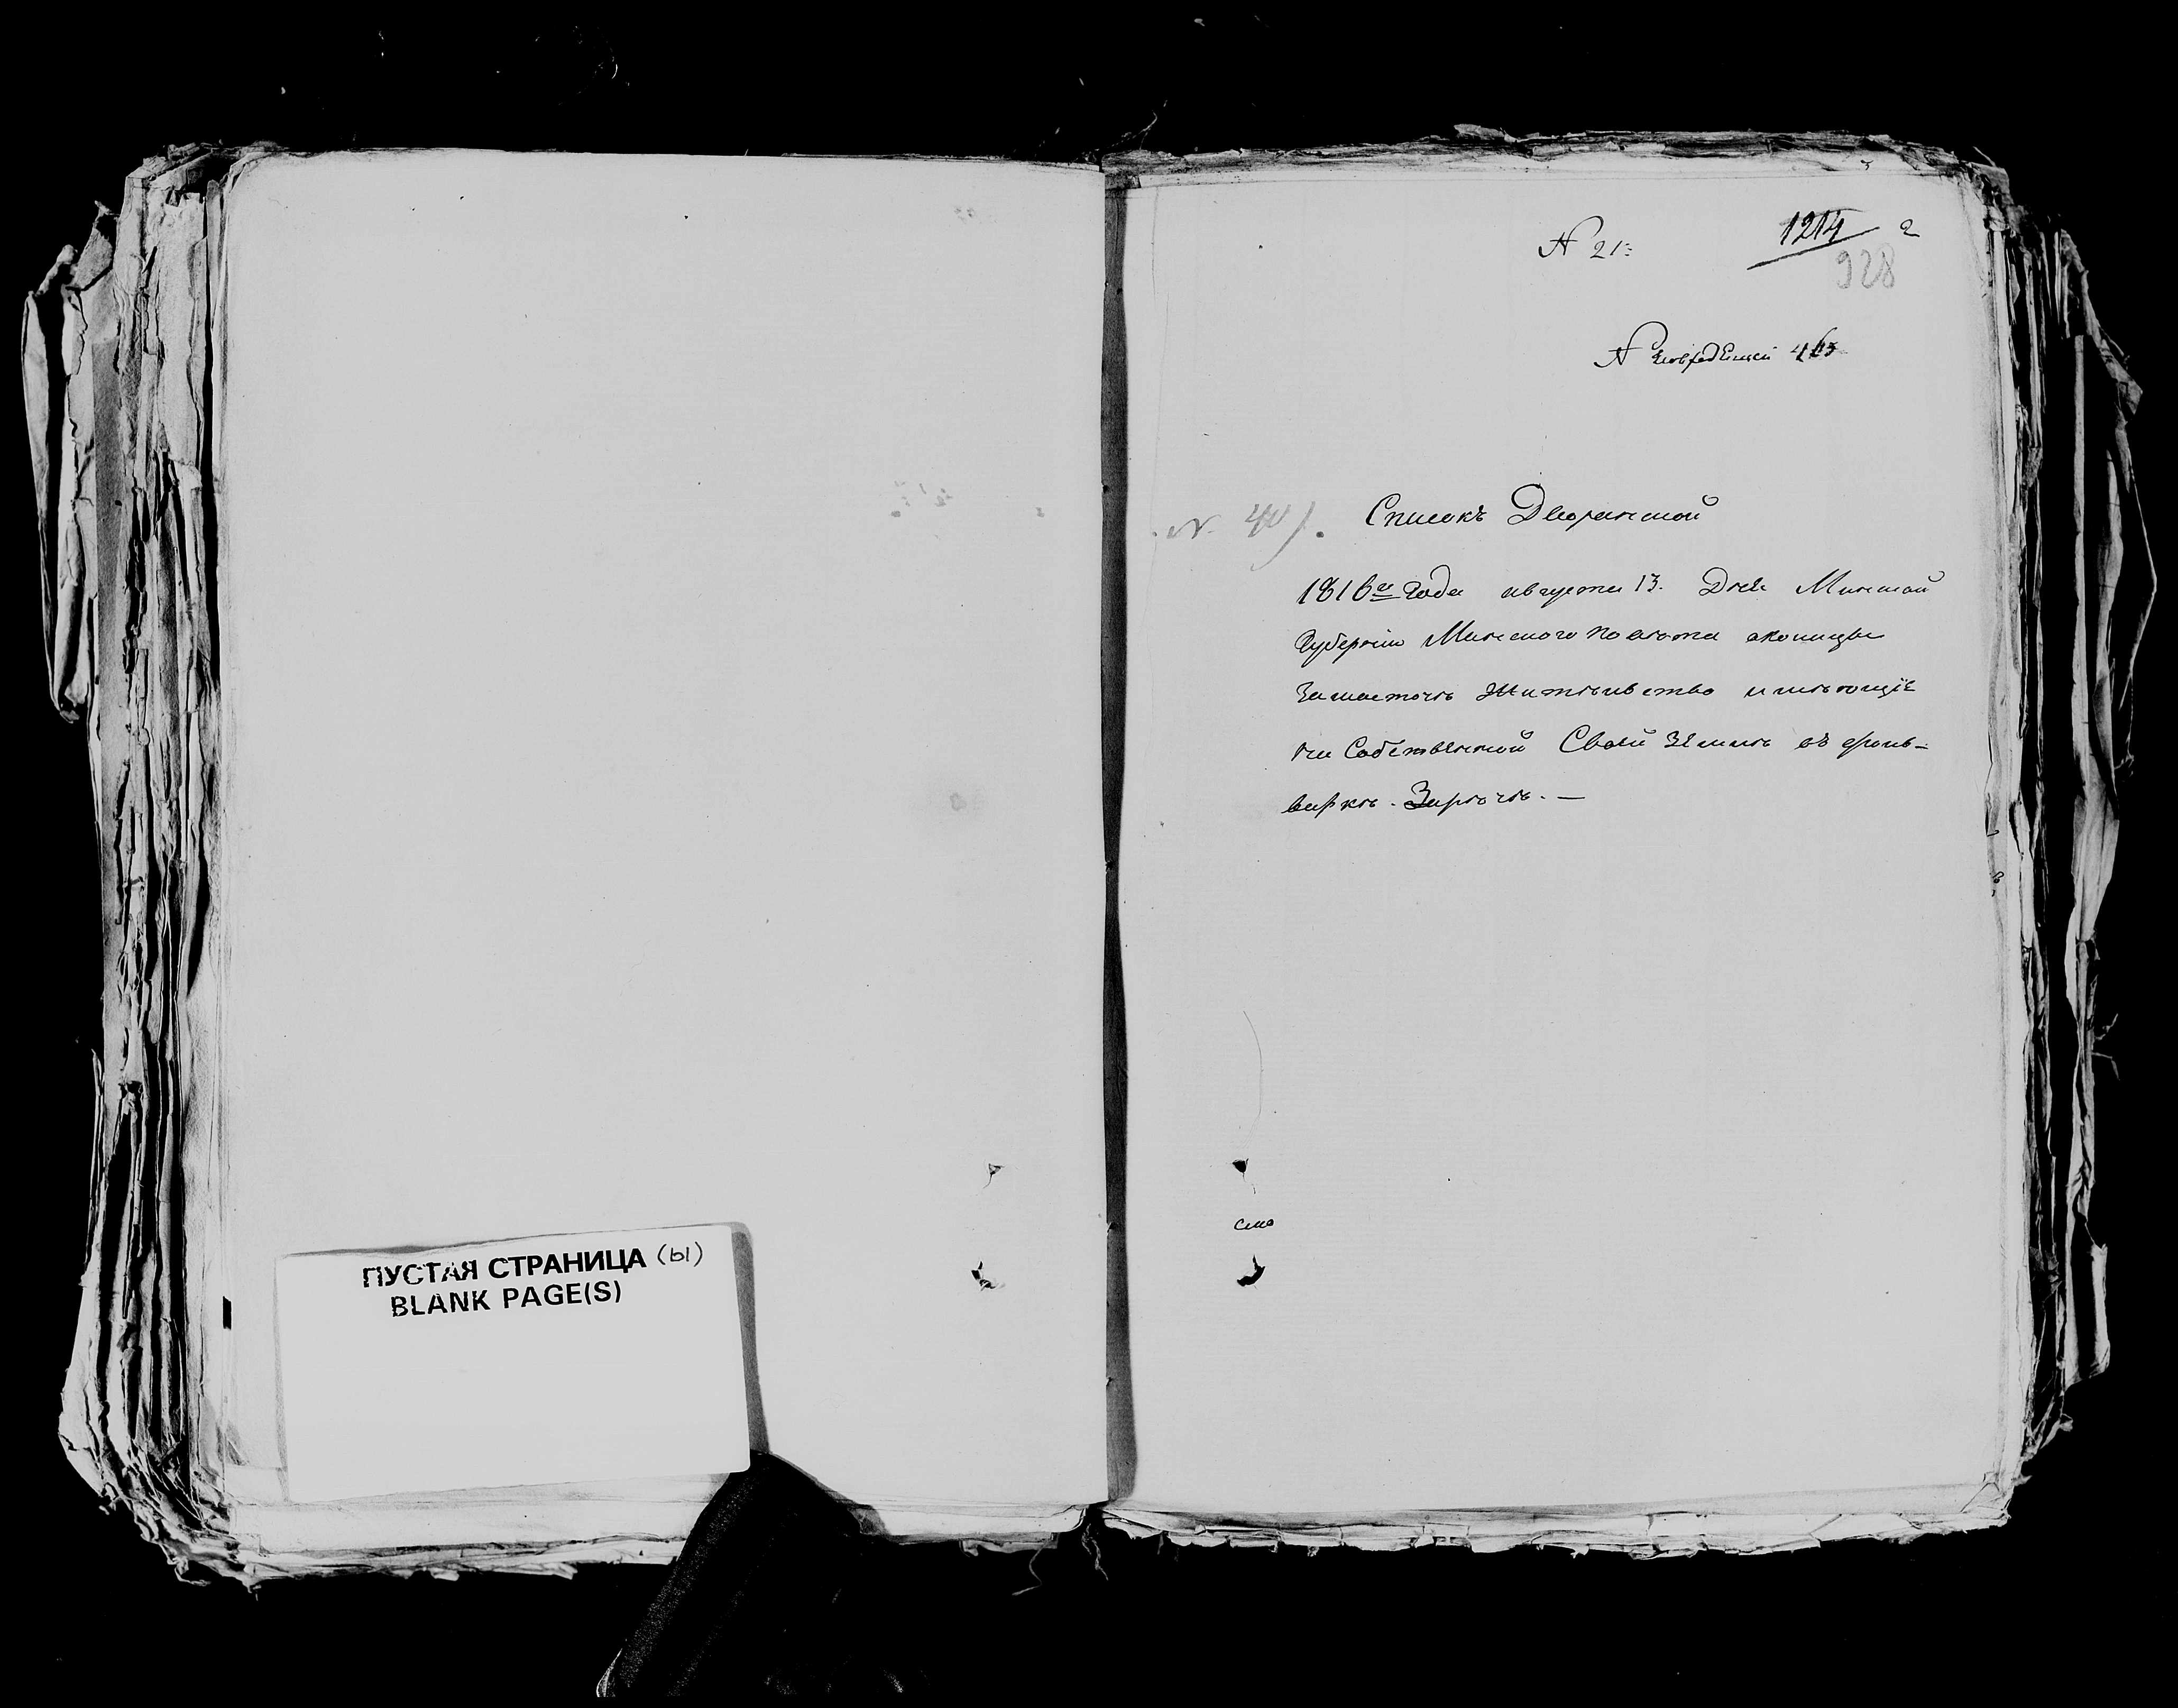 ПУСТАЯ СТРАНИЦА (ы)
BLANK PAGE(S)
N 21:
1214 2
928
N 463
N. 40). Списокъ Дворянской
1816го Года августа 13. Дня Минской
Губернiи Минского повѣта околицы
Замосточъ Жительство имѣющiе
на Собственной Своей Землѣ въ фоль-
варкѣ. Зарѣчѣ. —